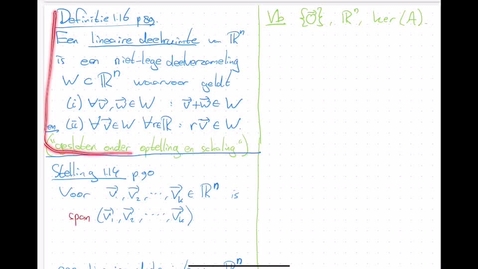 Definitie 1.16 p 89.
Een lineaire deelruimte v. ℝⁿ
is een niet-lege deelverzameling
W ⊂ ℝⁿ waarvoor geldt
(i) ∀v⃗, w⃗ ∈ W : v⃗+w⃗ ∈ W
(ii) ∀v⃗ ∈ W ∀r∈ℝ : r v⃗ ∈ W.
("gesloten onder optelling en schaling")
Stelling 1.14 p 90
Voor v⃗₁, v⃗₂, ⋯, v⃗ₖ ∈ ℝⁿ is
span (v⃗₁, v⃗₂, ⋯, v⃗ₖ)
Vb {0⃗}, ℝⁿ, ker(A).